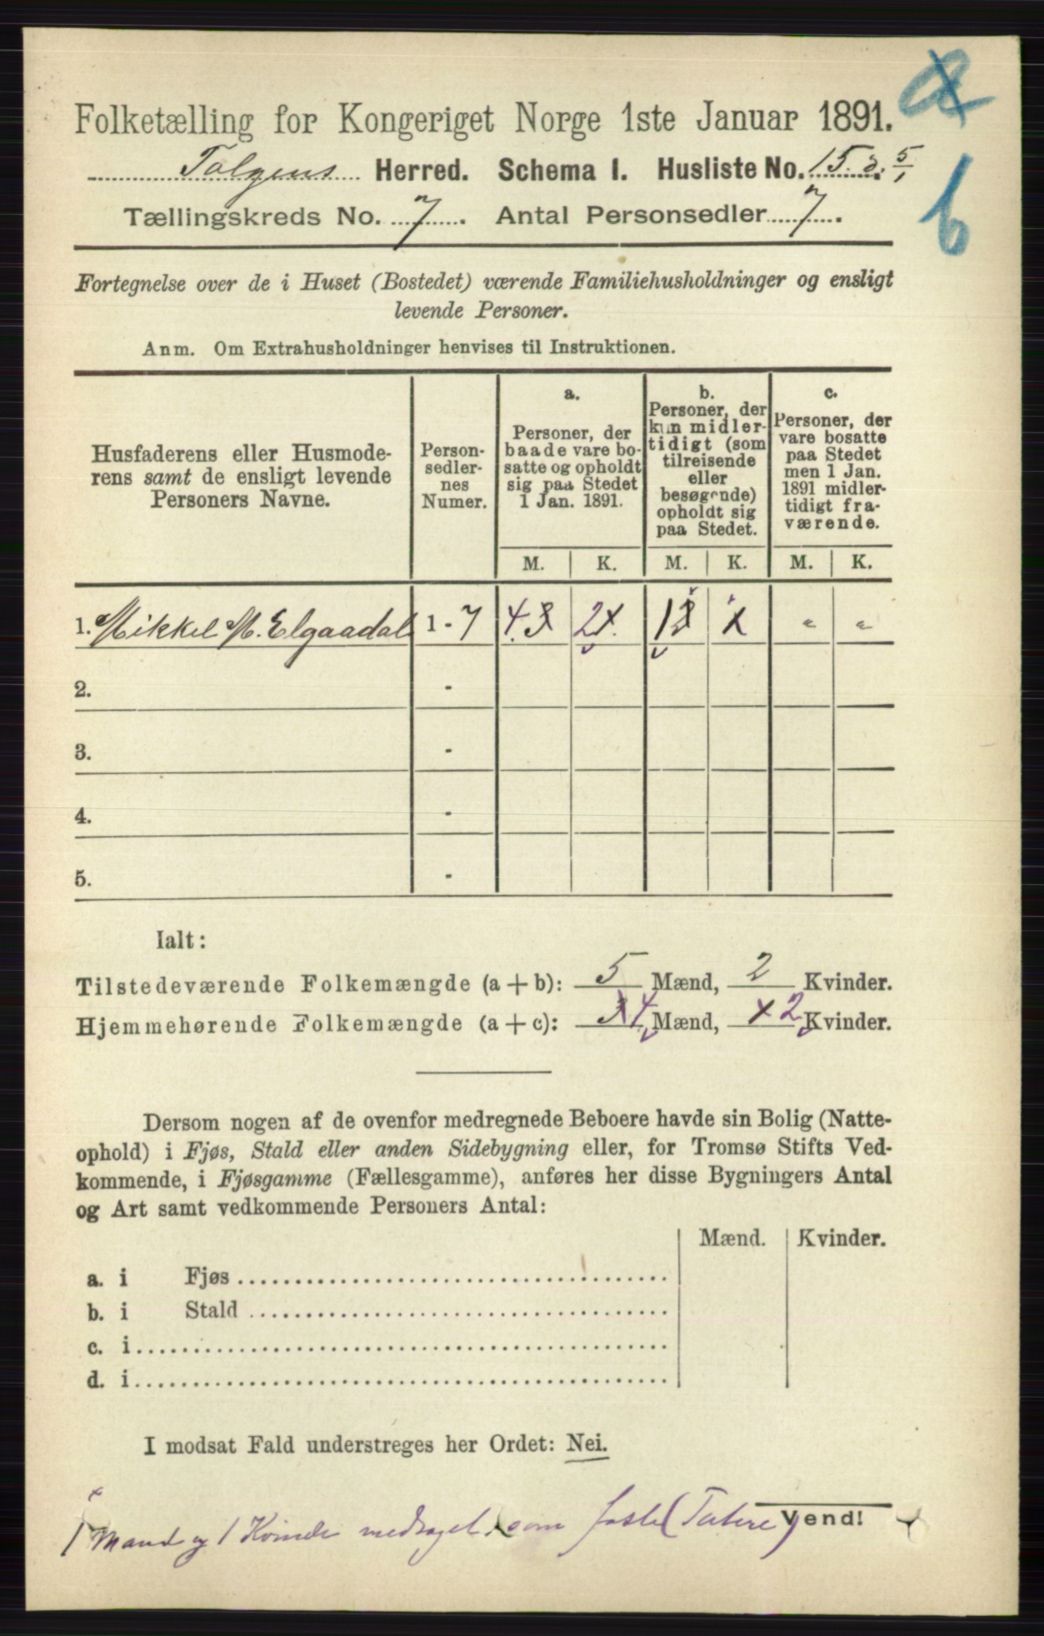 Folketælling for Kongeriget Norge 1ste Januar 1891.
Tolgens Herred. Schema I. Husliste No. 15.
Tællingskreds No. 7. Antal Personsedler 7.
6
Fortegnelse over de i Huset (Bostedet) værende Familiehusholdninger og ensligt
levende Personer.
Anm. Om Extrahusholdninger henvises til Instruktionen.
Husfaderens eller Husmode-
rens samt de ensligt levende
Personers Navne.
Person-
sedler-
nes
Numer.
a.
Personer, der
baade vare bo-
satte og opholdt
sig paa Stedet
1 Jan. 1891.
b.
Personer, der
kun midler-
tidigt (som
tilreisende
eller
besøgende)
opholdt sig
paa Stedet.
c.
Personer, der
vare bosatte
paa Stedet
men 1 Jan.
1891 midler-
tidigt fra-
værende.
M. K. M. K. M. K.
1. Mikkel M. Elgaadal 1 - 7 4 3 2 1 1 3 1 " "
2. -
3. -
4. -
5. -
Ialt:
Tilstedeværende Folkemængde (a + b): 5 Mænd, 2 Kvinder.
Hjemmehørende Folkemængde (a + c): 3 4 Mænd, 1 2 Kvinder.
Dersom nogen af de ovenfor medregnede Beboere havde sin Bolig (Natte-
ophold) i Fjøs, Stald eller anden Sidebygning eller, for Tromsø Stifts Ved-
kommende, i Fjøsgamme (Fællesgamme), anføres her disse Bygningers Antal
og Art samt vedkommende Personers Antal:
Mænd. Kvinder.
a. i Fjøs
b. i Stald
c. i
d. i
I modsat Fald understreges her Ordet: Nei.
Vend!
1 Mand og 1 Kvinde medtaget som faste (Tatere)